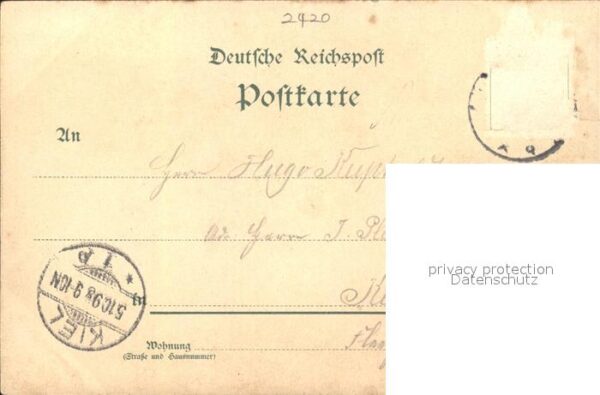 2420
Deutsche Reichspost
Postkarte
An
Herrn Hugo
Adr. Herrn J.
in
Wohnung
(Straße und Hausnummer)
KIEL
5.10.98 9-10N
* 1 p
privacy protection
Datenschutz